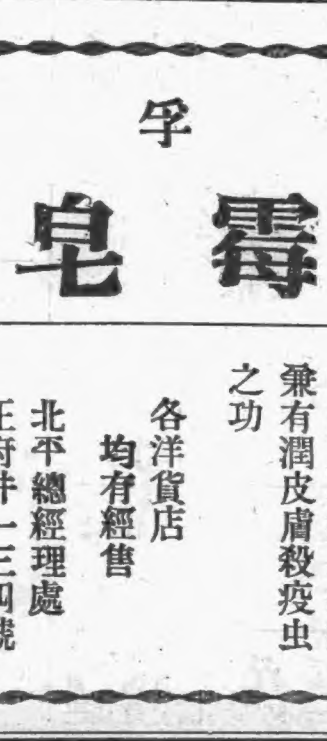 孚
霉皂
兼有潤皮膚殺疫虫
之功
各洋貨店
均有經售
北平總經理處
王府井一三四號